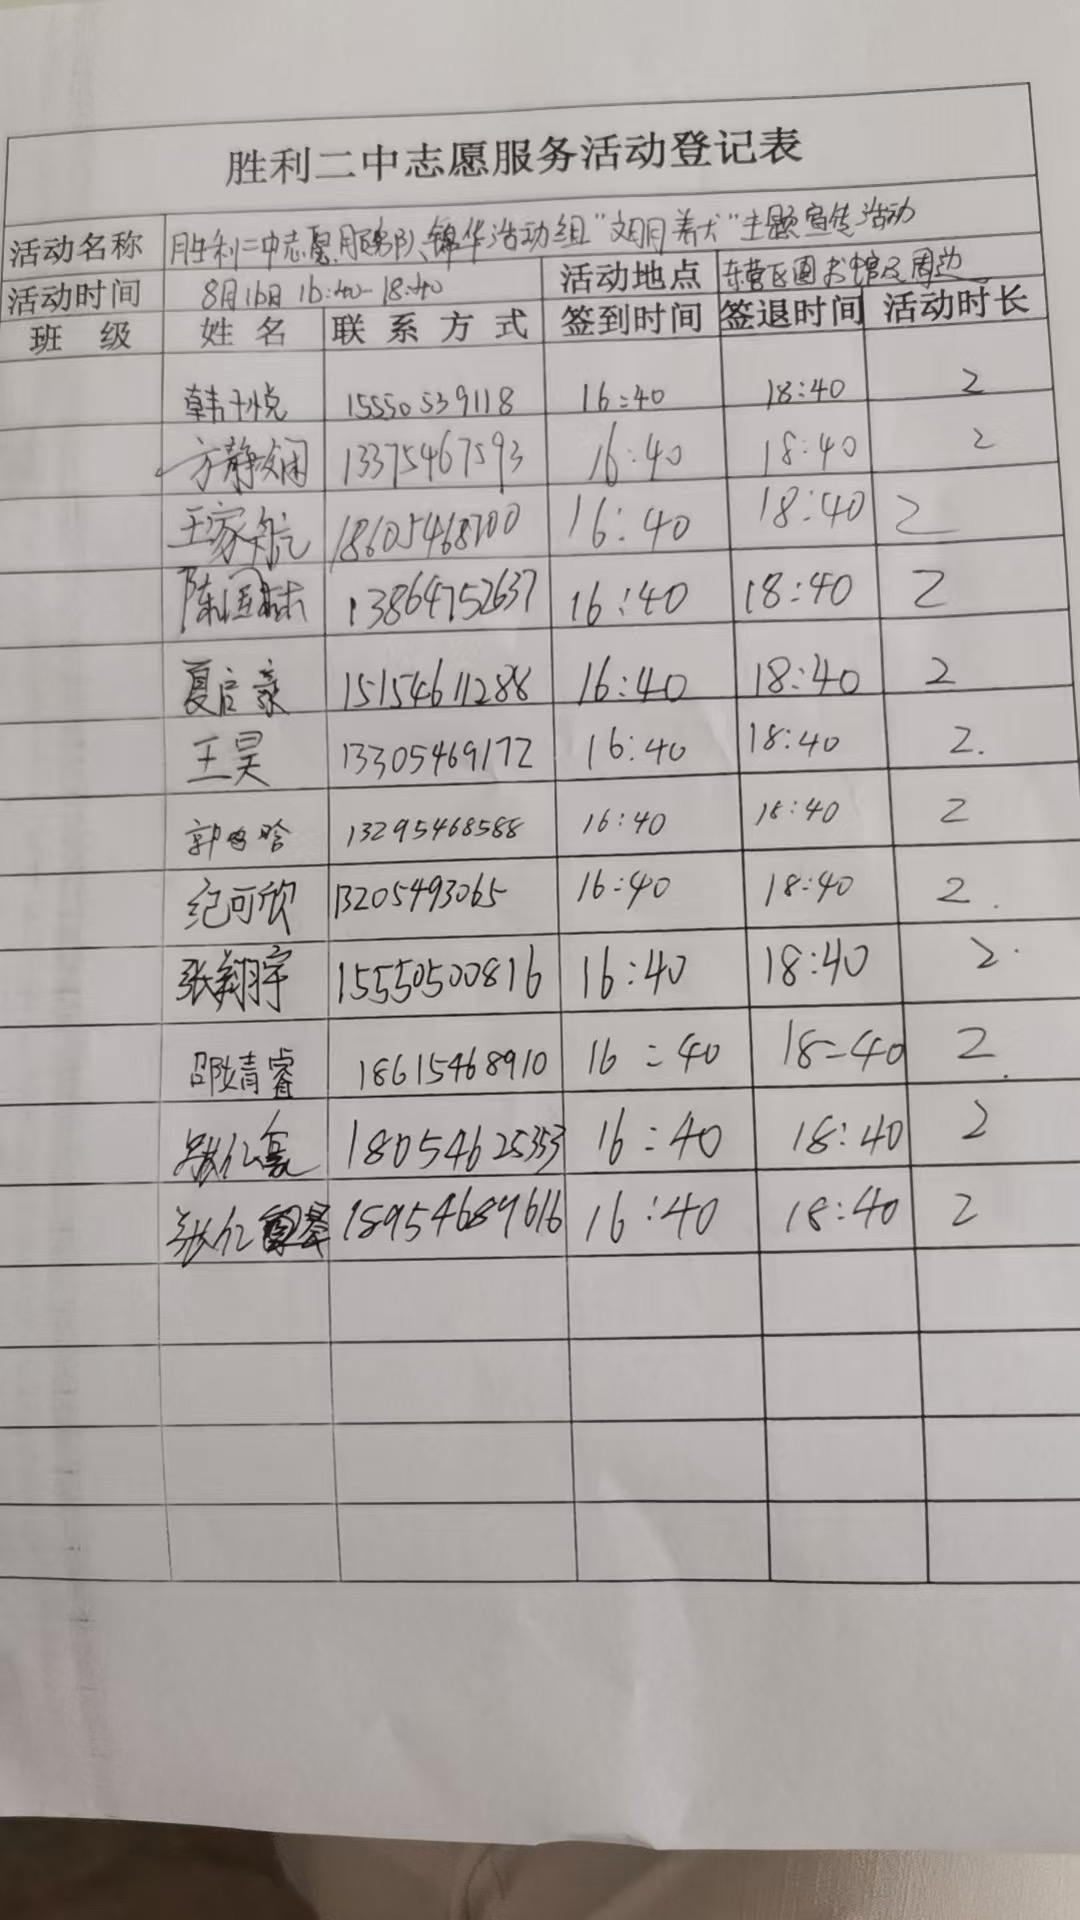 胜利二中志愿服务活动登记表
活动名称 胜利二中志愿服务队锦华活动组"文明养犬"主题宣传活动
活动时间 8月16日 16:40-18:40 活动地点 东营区图书馆及周边
班级 姓名 联系方式 签到时间 签退时间 活动时长
韩于悦 15550539118 16:40 18:40 2
方静娴 13375467593 16:40 18:40 2
王家航 18605468700 16:40 18:40 2
陈国栋 13864752637 16:40 18:40 2
夏启豪 15154611288 16:40 18:40 2
王昊 13305469172 16:40 18:40 2.
郭 13295468588 16:40 18:40 2
纪可欣 13205493065 16:40 18:40 2.
张翔宇 15550500816 16:40 18:40 2.
邵婧睿 18615468910 16:40 18:40 2.
张亿豪 18054625353 16:40 18:40 2
张亿 18954689616 16:40 18:40 2